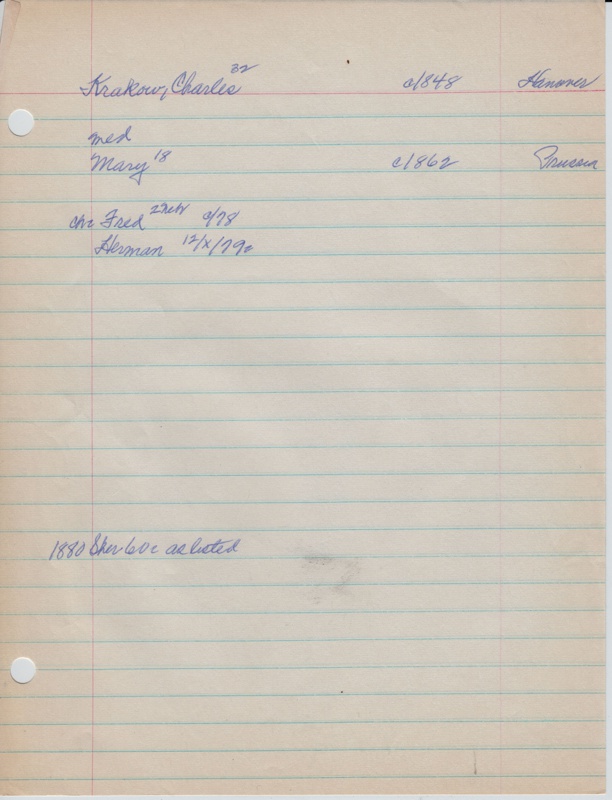 Krakow, Charles 32 c1848 Hanover
med
Mary 18 c1862 Prussia
ch: Fred c/78
Herman 12/x/79
1880 Sher 60c as listed